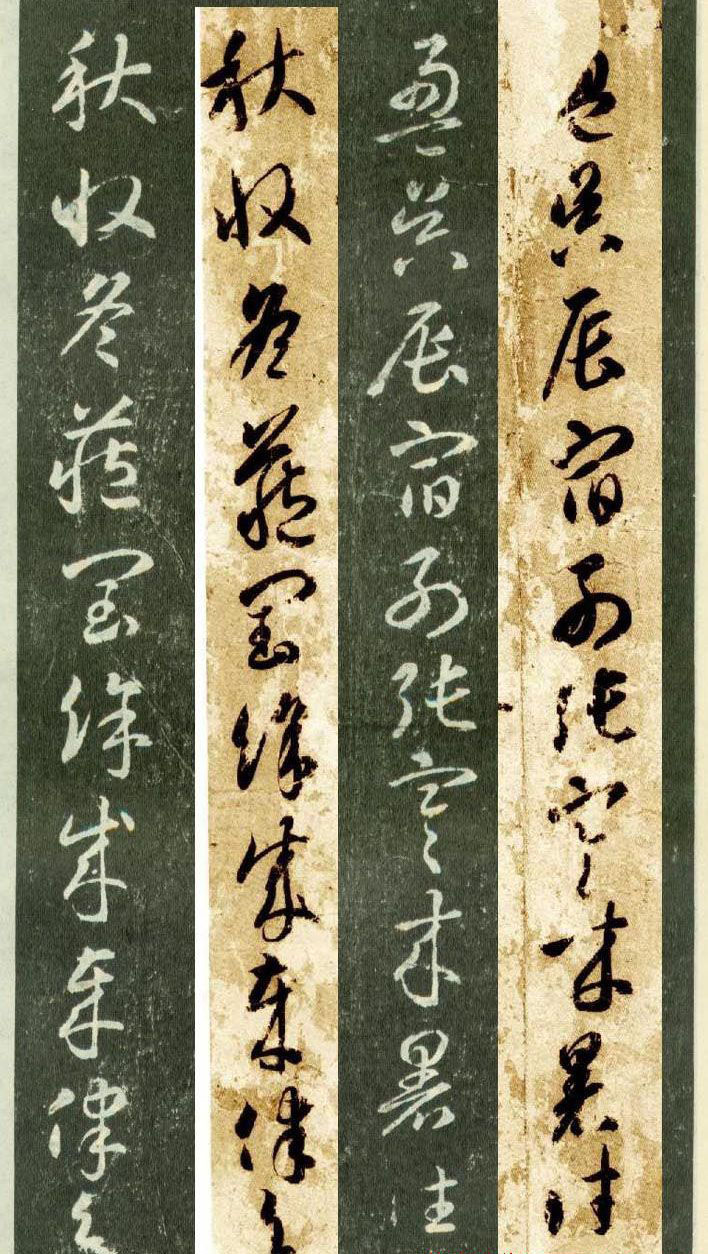 盈昃辰宿列張寒來暑往
盈昃辰宿列張寒來暑往
秋收冬藏閏餘成歲律呂
秋收冬藏閏餘成歲律呂